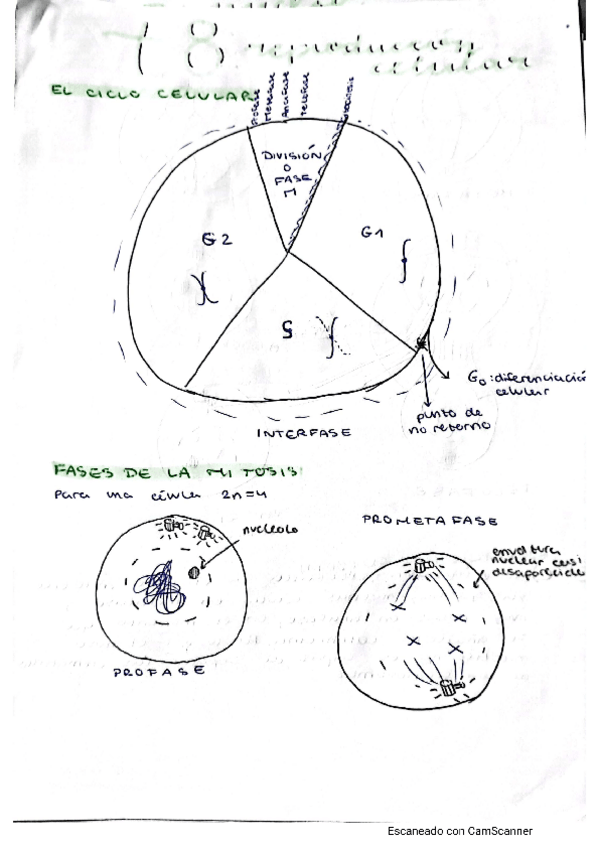 T 8 reproducción
celular
EL CICLO CELULAR
Profase
Metafase
Anafase
Telofase
DIVISIÓN
O
FASE
M
G2
G1
S
G₀: diferenciación
celular
punto de
no retorno
INTERFASE
FASES DE LA MITOSIS
Para una célula 2n=4
nucleolo
PROMETAFASE
envoltura
nuclear casi
desaparecida
PROFASE
Escaneado con CamScanner